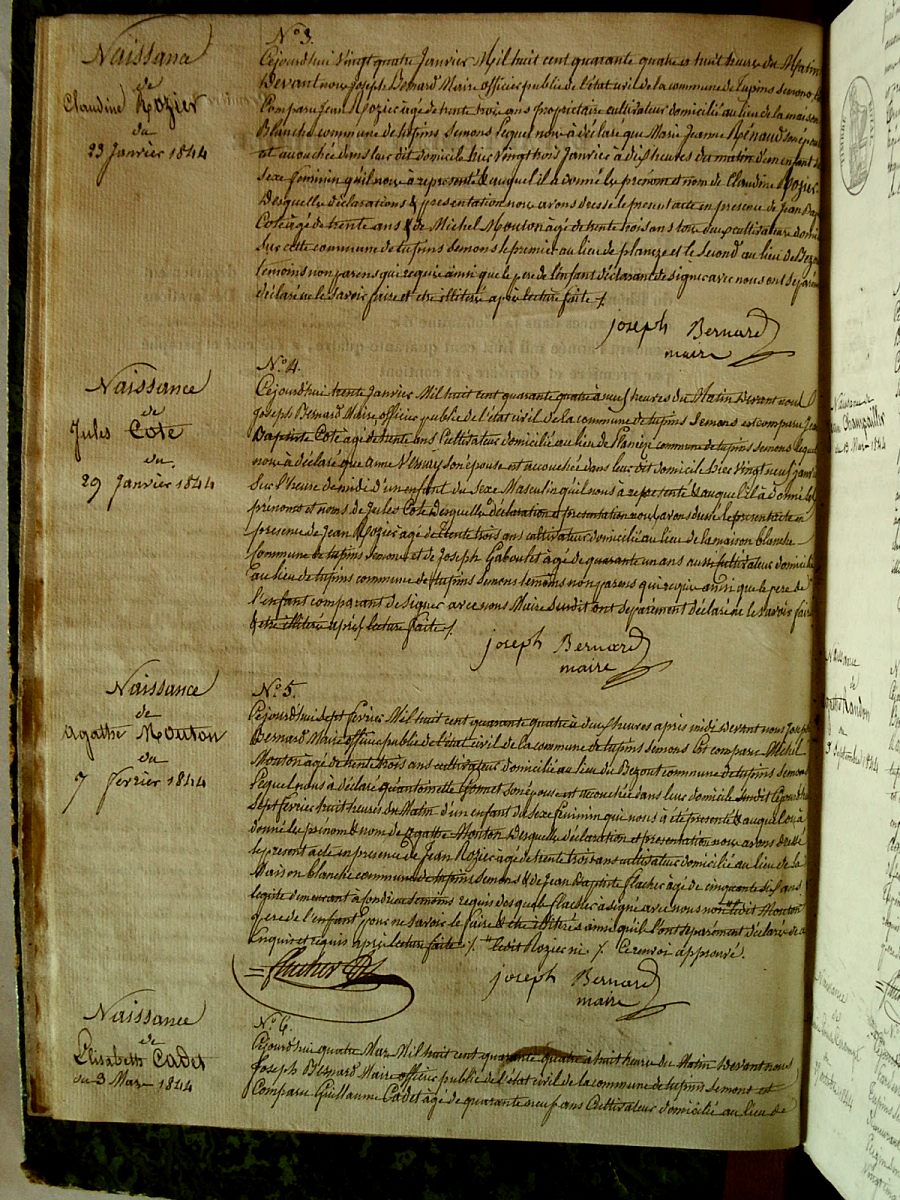 Naissance
de
Claudine Rozier
du
23 Janvier 1844
N.o 3.
Cejourd'hui vingt quatre Janvier Mil huit cent quarante quatre a huit heure du Matin
Devant nous Joseph Bernard Maire officier public de l'état civil de la commune de tupins semons
Comparu Jean Rozier agé de trente trois ans propriétaire cultivateur domicilié au lieu de la maison
Blanche commune de tupins Semons lequel nous à déclaré que Marie Jeanne Rénaud son
est accouchée dans leur dit domicile hier vingt trois Janvier à dix heures du matin d'un enfant
sexe féminin qu'il nous à représenté & auquel il a donné les prénom et nom de Claudine Rozier
Desquelles déclarations & présentation nous avons dressé le présent acte en présence de Jean
Cote agé de trente ans & de Michel Mouton agé de trente trois ans tous deux cultivateurs
sur cette commune de tupins semons le premier au lieu de planèze et le second au lieu de
témoins non parens qui requis ainsi que le père de l'enfant déclarant de signer avec nous ont
déclaré ne le savoir faire et etre illitéré après lecture faite /.
joseph Bernard
maire
Naissance
de
Jules Cote
du
29 Janvier 1844
N.o 4.
Cejourd'hui trente Janvier Mil huit cent quarante quatre à neuf heures du Matin Devant nous
Joseph Bernard Maire officier public de l'état civil de la commune de tupins Semons est comparu Jean
Baptiste Cote agé de trente ans Cultivateur domicilié au lieu de Planèze commune de tupins semons lequel
nous à déclaré que anne Vernay son épouse est accouchée dans leur dit domicile hier vingt neuf
Sur l'heure de midi d'un enfant du Sexe Masculin qu'il nous à représenté & auquel il à donné les
prénoms et noms de Jules Cote Desquelles déclaration et présentation nous avons dressé le présent acte en
présence de Jean Rozier agé de trente trois ans cultivateur domicilié au lieu de la maison blanche
Commune de tupins Semons et de Joseph Gaboulet agé de quarante un ans aussi cultivateur domicilié
au lieu de tupins commune de tupins Semons témoins non parens qui requis ainsi que le père de
l'enfant comparant de signer avec nous Maire susdit ont séparément déclaré ne le savoir faire
& etre illitéré après lecture faite /.
joseph Bernard
maire
Naissance
de
Agathe Mouton
du
7 Février 1844
N.o 5.
Cejourd'hui Sept février Mil huit cent quarante quatre à deux heures après midi Devant nous Joseph
Bernard Maire officier public de l'état civil de la commune de tupins Semons Est comparu Michel
Mouton agé de trente trois ans cultivateur domicilié au lieu du Bezout commune de tupins semons
Lequel nous à déclaré qu'antoinette son épouse est accouchée dans leur domicile susdit
Sept février huit heures du Matin d'un enfant du Sexe féminin qui nous à été présenté & auquel on à
donné les prénom & nom de Agathe Mouton Desquelles déclaration et présentation nous avons dressé
le présent acte en présence de Jean Rozier agé de trente trois ans cultivateur domicilié au lieu de la
Maison blanche commune de tupins Semons & de Jean Baptiste Flacher agé de cinquante six ans
demeurant à témoins requis desquels Flacher a signé avec nous non ledit Mouton
père de l'enfant pour ne savoir le faire & etre illitérés ainsi qu'ils l'ont séparément déclaré de ce
Enquis et requis après lecture faite /. "ledit Rozier ni /. Ce renvoi approuvé.
Flacher
joseph Bernard
maire
Naissance
de
Elisabeth Cadet
du 3 Mar 1844
N.o 6.
Cejourd'hui quatre Mar Mil huit cent quarante quatre à huit heure du Matin Devant nous
Joseph Bernard Maire officier public de l'état civil de la commune de tupins Semons est
Comparu Guillaume Cadet agé de quarante neuf ans Cultivateur domicilié au lieu de